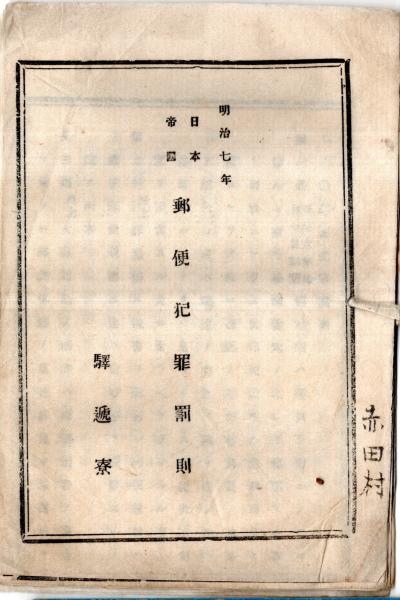 赤田村
明治七年
日本
帝國
郵便犯罪罰則
驛遞寮